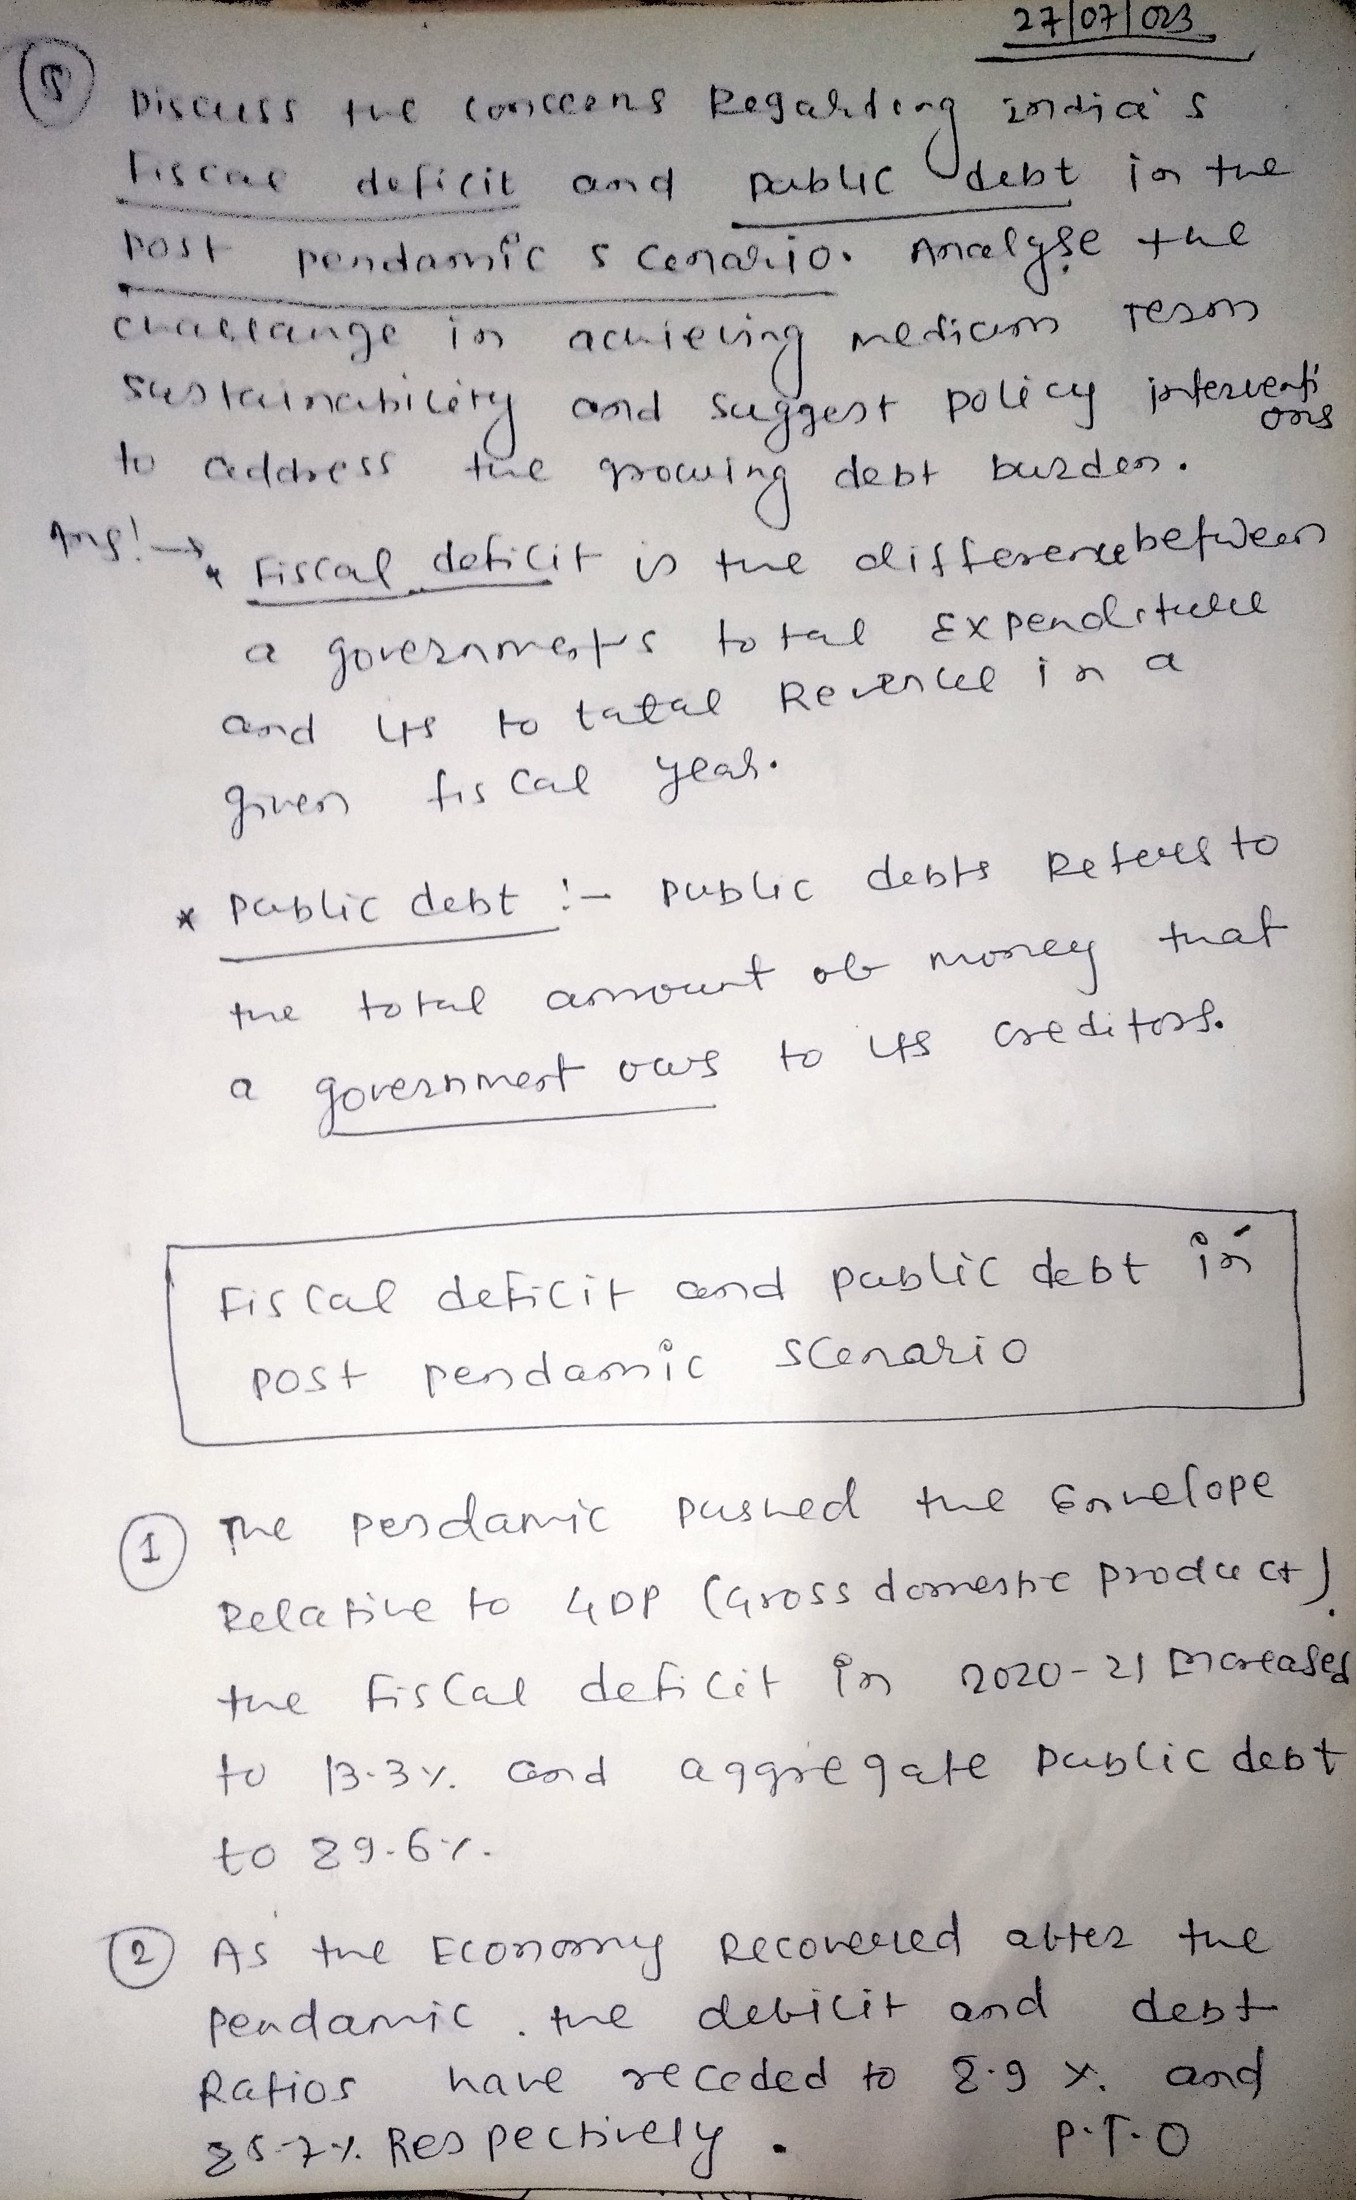 27/07/023
5 Discuss the concerns Regarding india's
Fiscal deficit and public debt in the
post pendamic scenario. Analyse the
challange in achieving medium Term
sustainability and suggest policy interventi
ons
to address the growing debt burden.
Ans:→ * Fiscal deficit is the difference between
a government's total Expenditure
and its to tatal Revenue in a
given fiscal year.
* public debt :- public debts Refers to
the total amount of money that
a government ows to its creditors.
Fiscal deficit and public debt in
post pendamic scenario
1 The pendamic pushed the Envelope
Relative to GDP (Gross domestic product).
the fiscal deficit in 2020-21 Increased
to 13.3%. and aggregate public debt
to 89.6%.
2 As the Economy Recovered after the
pendamic. the deficit and debt
Ratios have receded to 8.9%. and
85.7%. Respectively.
P.T.O